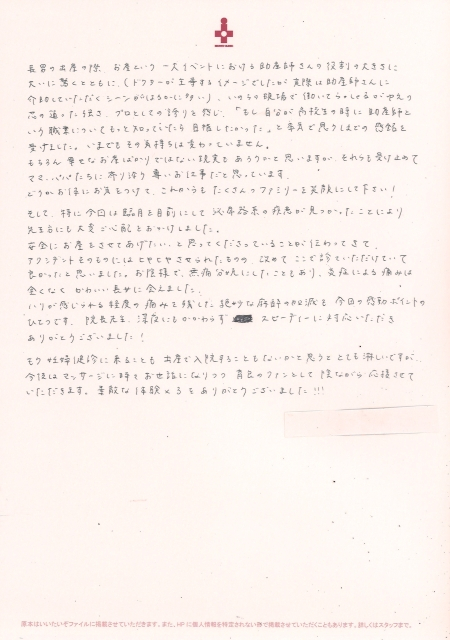 長男の出産の際、お産という一大イベントにおける助産師さんの役割の大きさに
大いに驚くとともに、(ドクターが主導するイメージでしたが実際は助産師さんに
介助していただくシーンがはるかに多い)、いのちの現場で働いていらっしゃるがゆえの
芯の通った強さ、プロとしての誇りを感じ、「もし自分が高校生の時に助産師と
いう職業についてもっと知っていたら目指したかった」と本気で思うほどの感銘を
受けました。いまでもその気持ちは変わっていません。
もちろん幸せなお産ばかりではない現実もあろうかと思いますが、それらも受け止めて
ママ、パパたちに寄り添う尊いお仕事だと思っています。
どうかお体にお気をつけて、これからもたくさんのファミリーを笑顔にして下さい!
そして、特に今回は臨月を目前にして泌尿器系の疾患が見つかったことにより
先生方にも大変ご心配をおかけしました。
安全にお産をさせてあげたい、と思ってくださっていることが伝わってきて、
アクシデントそのものにはヒヤヒヤさせられたものの、改めてここで診ていただけていて
良かったと思いました。お陰様で、無痛分娩にしたこともあり、炎症による痛みは
全くなく かわいい長女に会えました。
いきみが感じられる程度の痛みを残した絶妙な麻酔の加減も今回の感動ポイントの
ひとつです。院長先生、深夜にもかかわらず スピーディーに対応いただき
ありがとうございました!
もう妊婦健診に来ることも出産で入院することもないかと思うととても淋しいですが、
今後はマッサージに時々お世話になりつつ 育良のファンとして陰ながら応援させて
いただきます。素敵な体験×3をありがとうございました!!!
原本はいいたいぞファイルに掲載させていただきます。また、HPに個人情報を特定されない形で掲載させていただくこともあります。詳しくはスタッフまで。